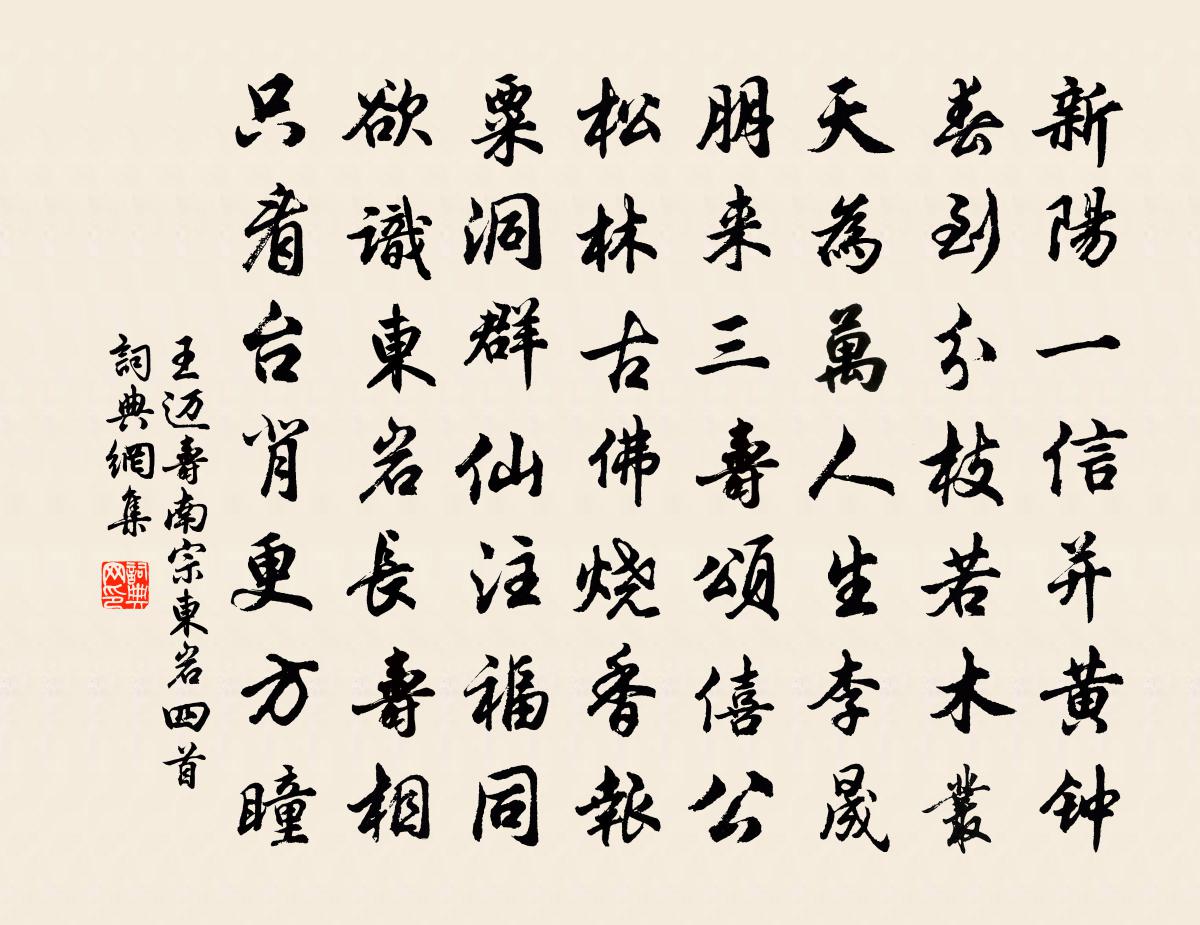 新陽一信并黄钟
春到分枝若木叢
天為萬人生李晟
朋来三壽頌僖公
松林古佛烧香報
粟洞群仙注福同
欲識東岩長壽相
只看台背更方瞳
王迈壽南宗東岩四首
詞典網集
詞典网印